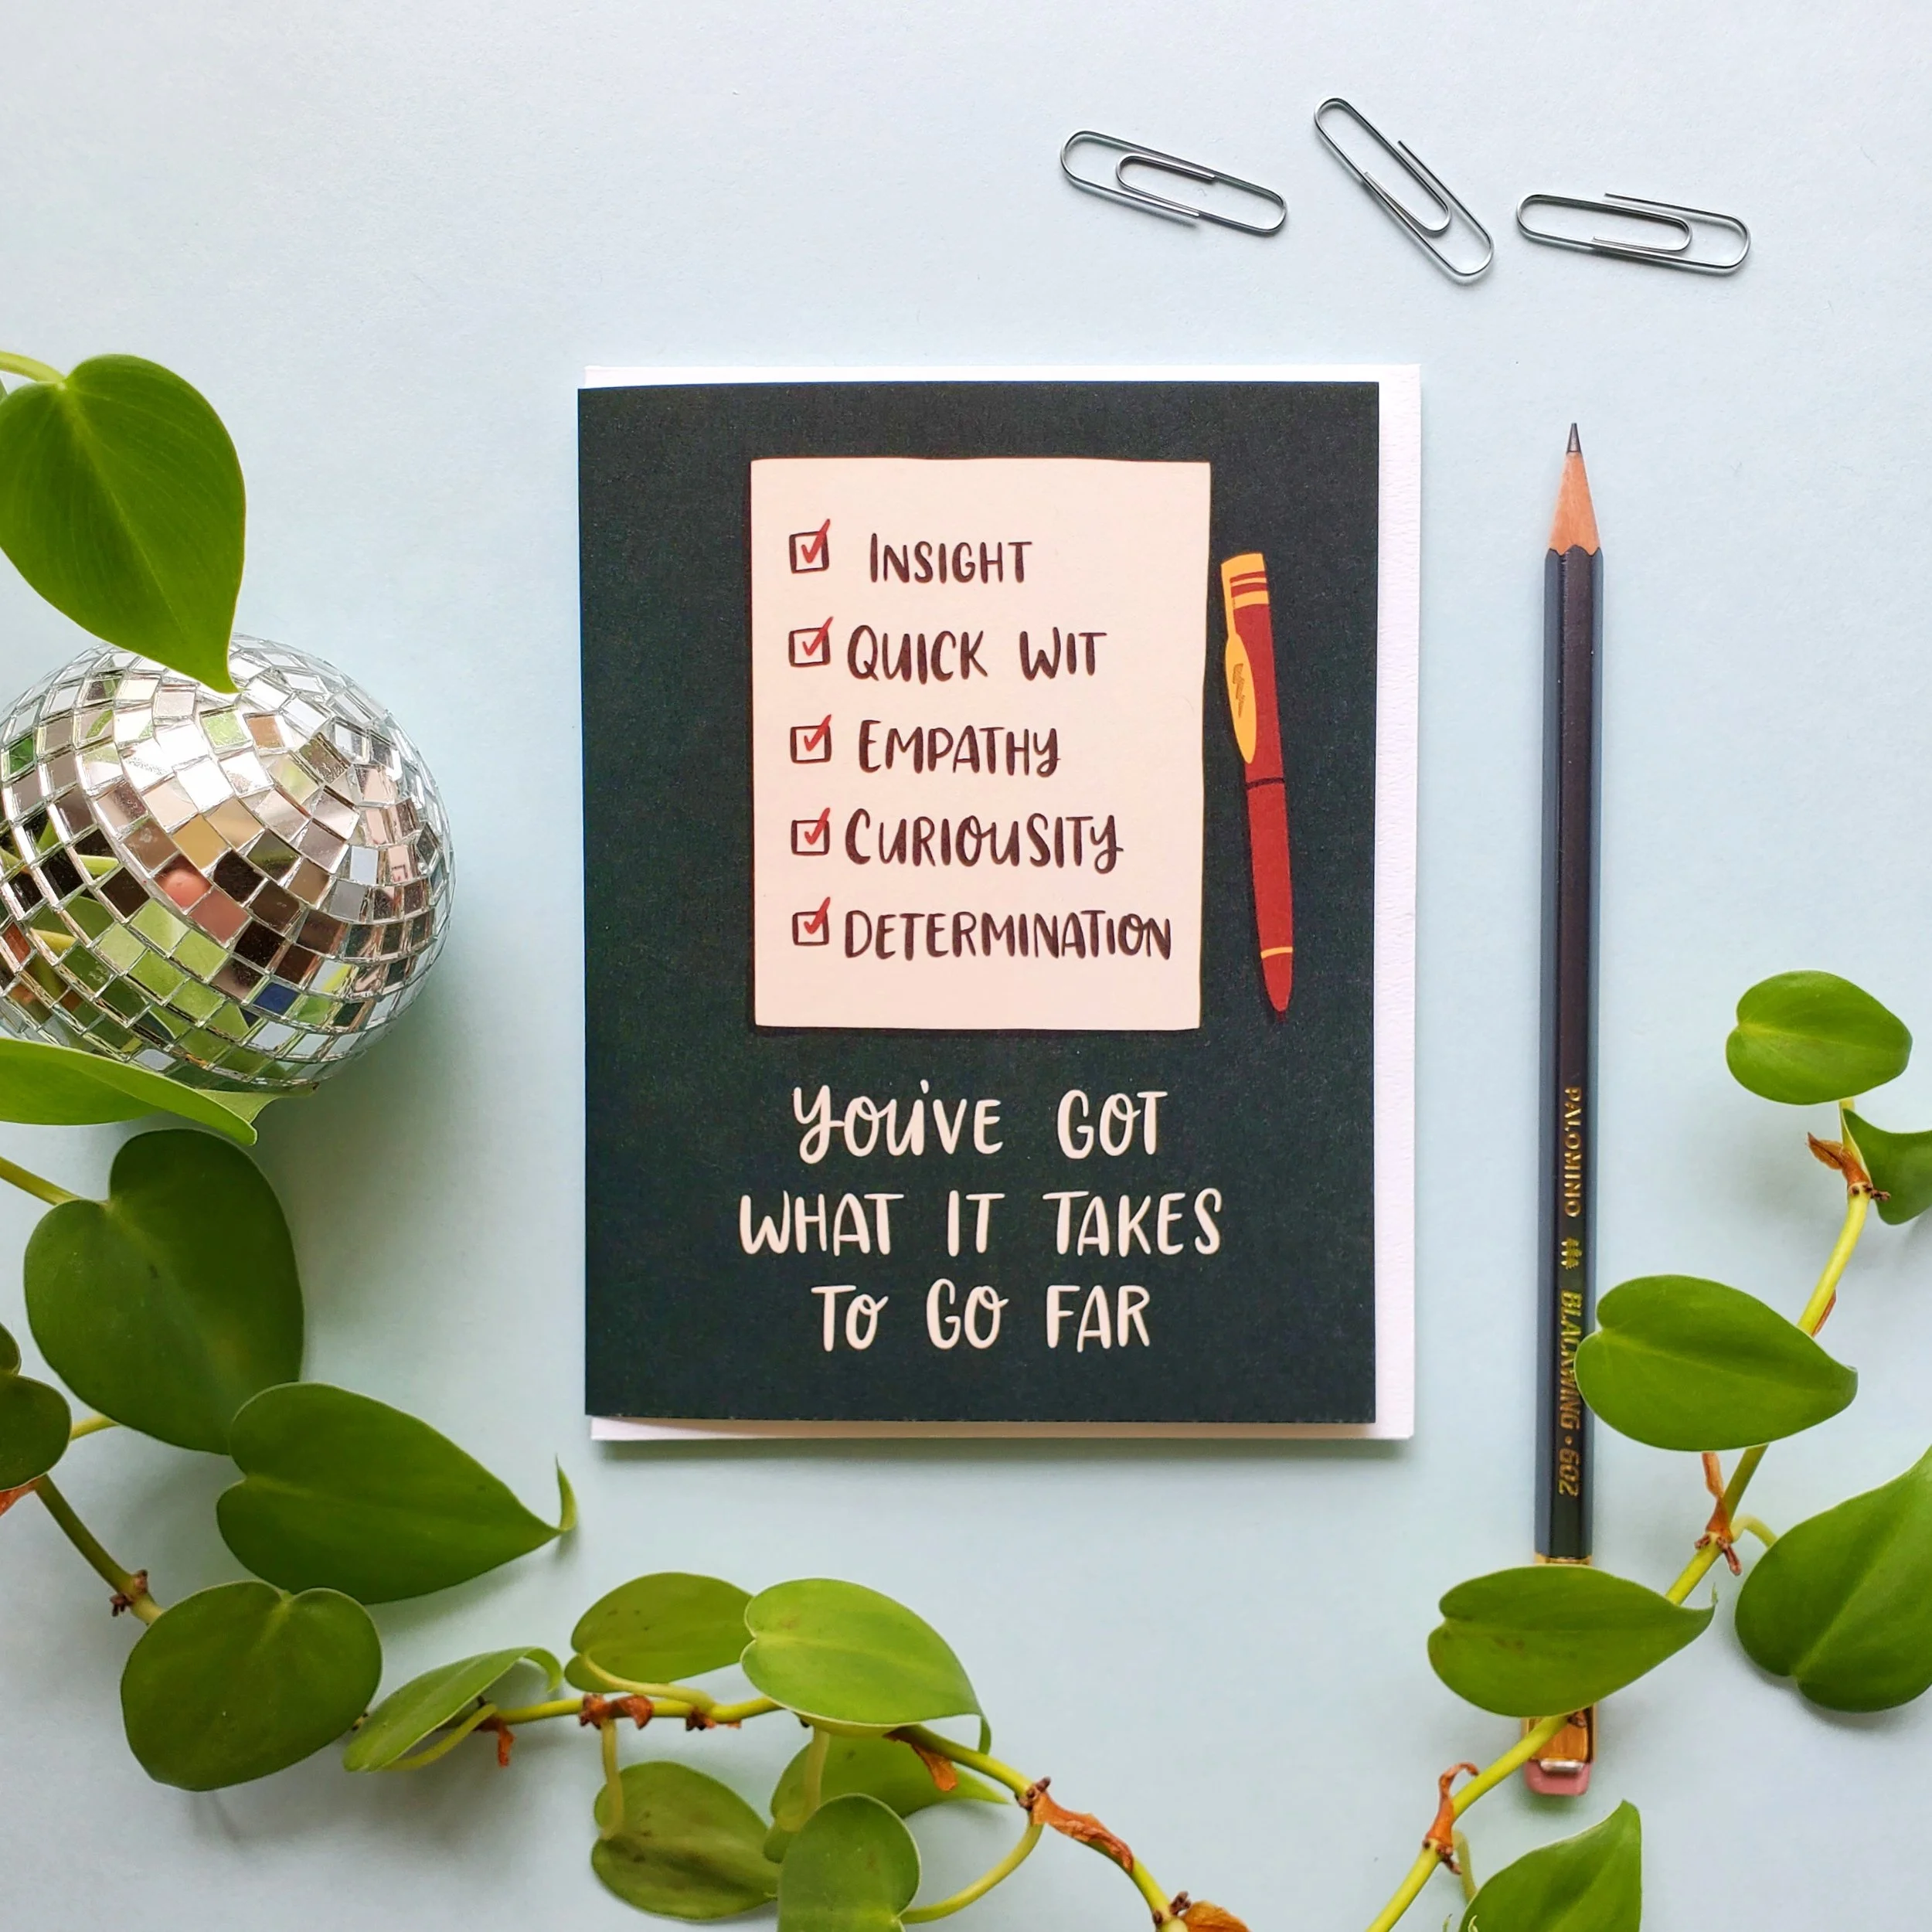 INSIGHT
QUICK WIT
EMPATHY
CURIOUSITY
DETERMINATION
YOU'VE GOT
WHAT IT TAKES
TO GO FAR
PALOMINO BLACKWING • 602